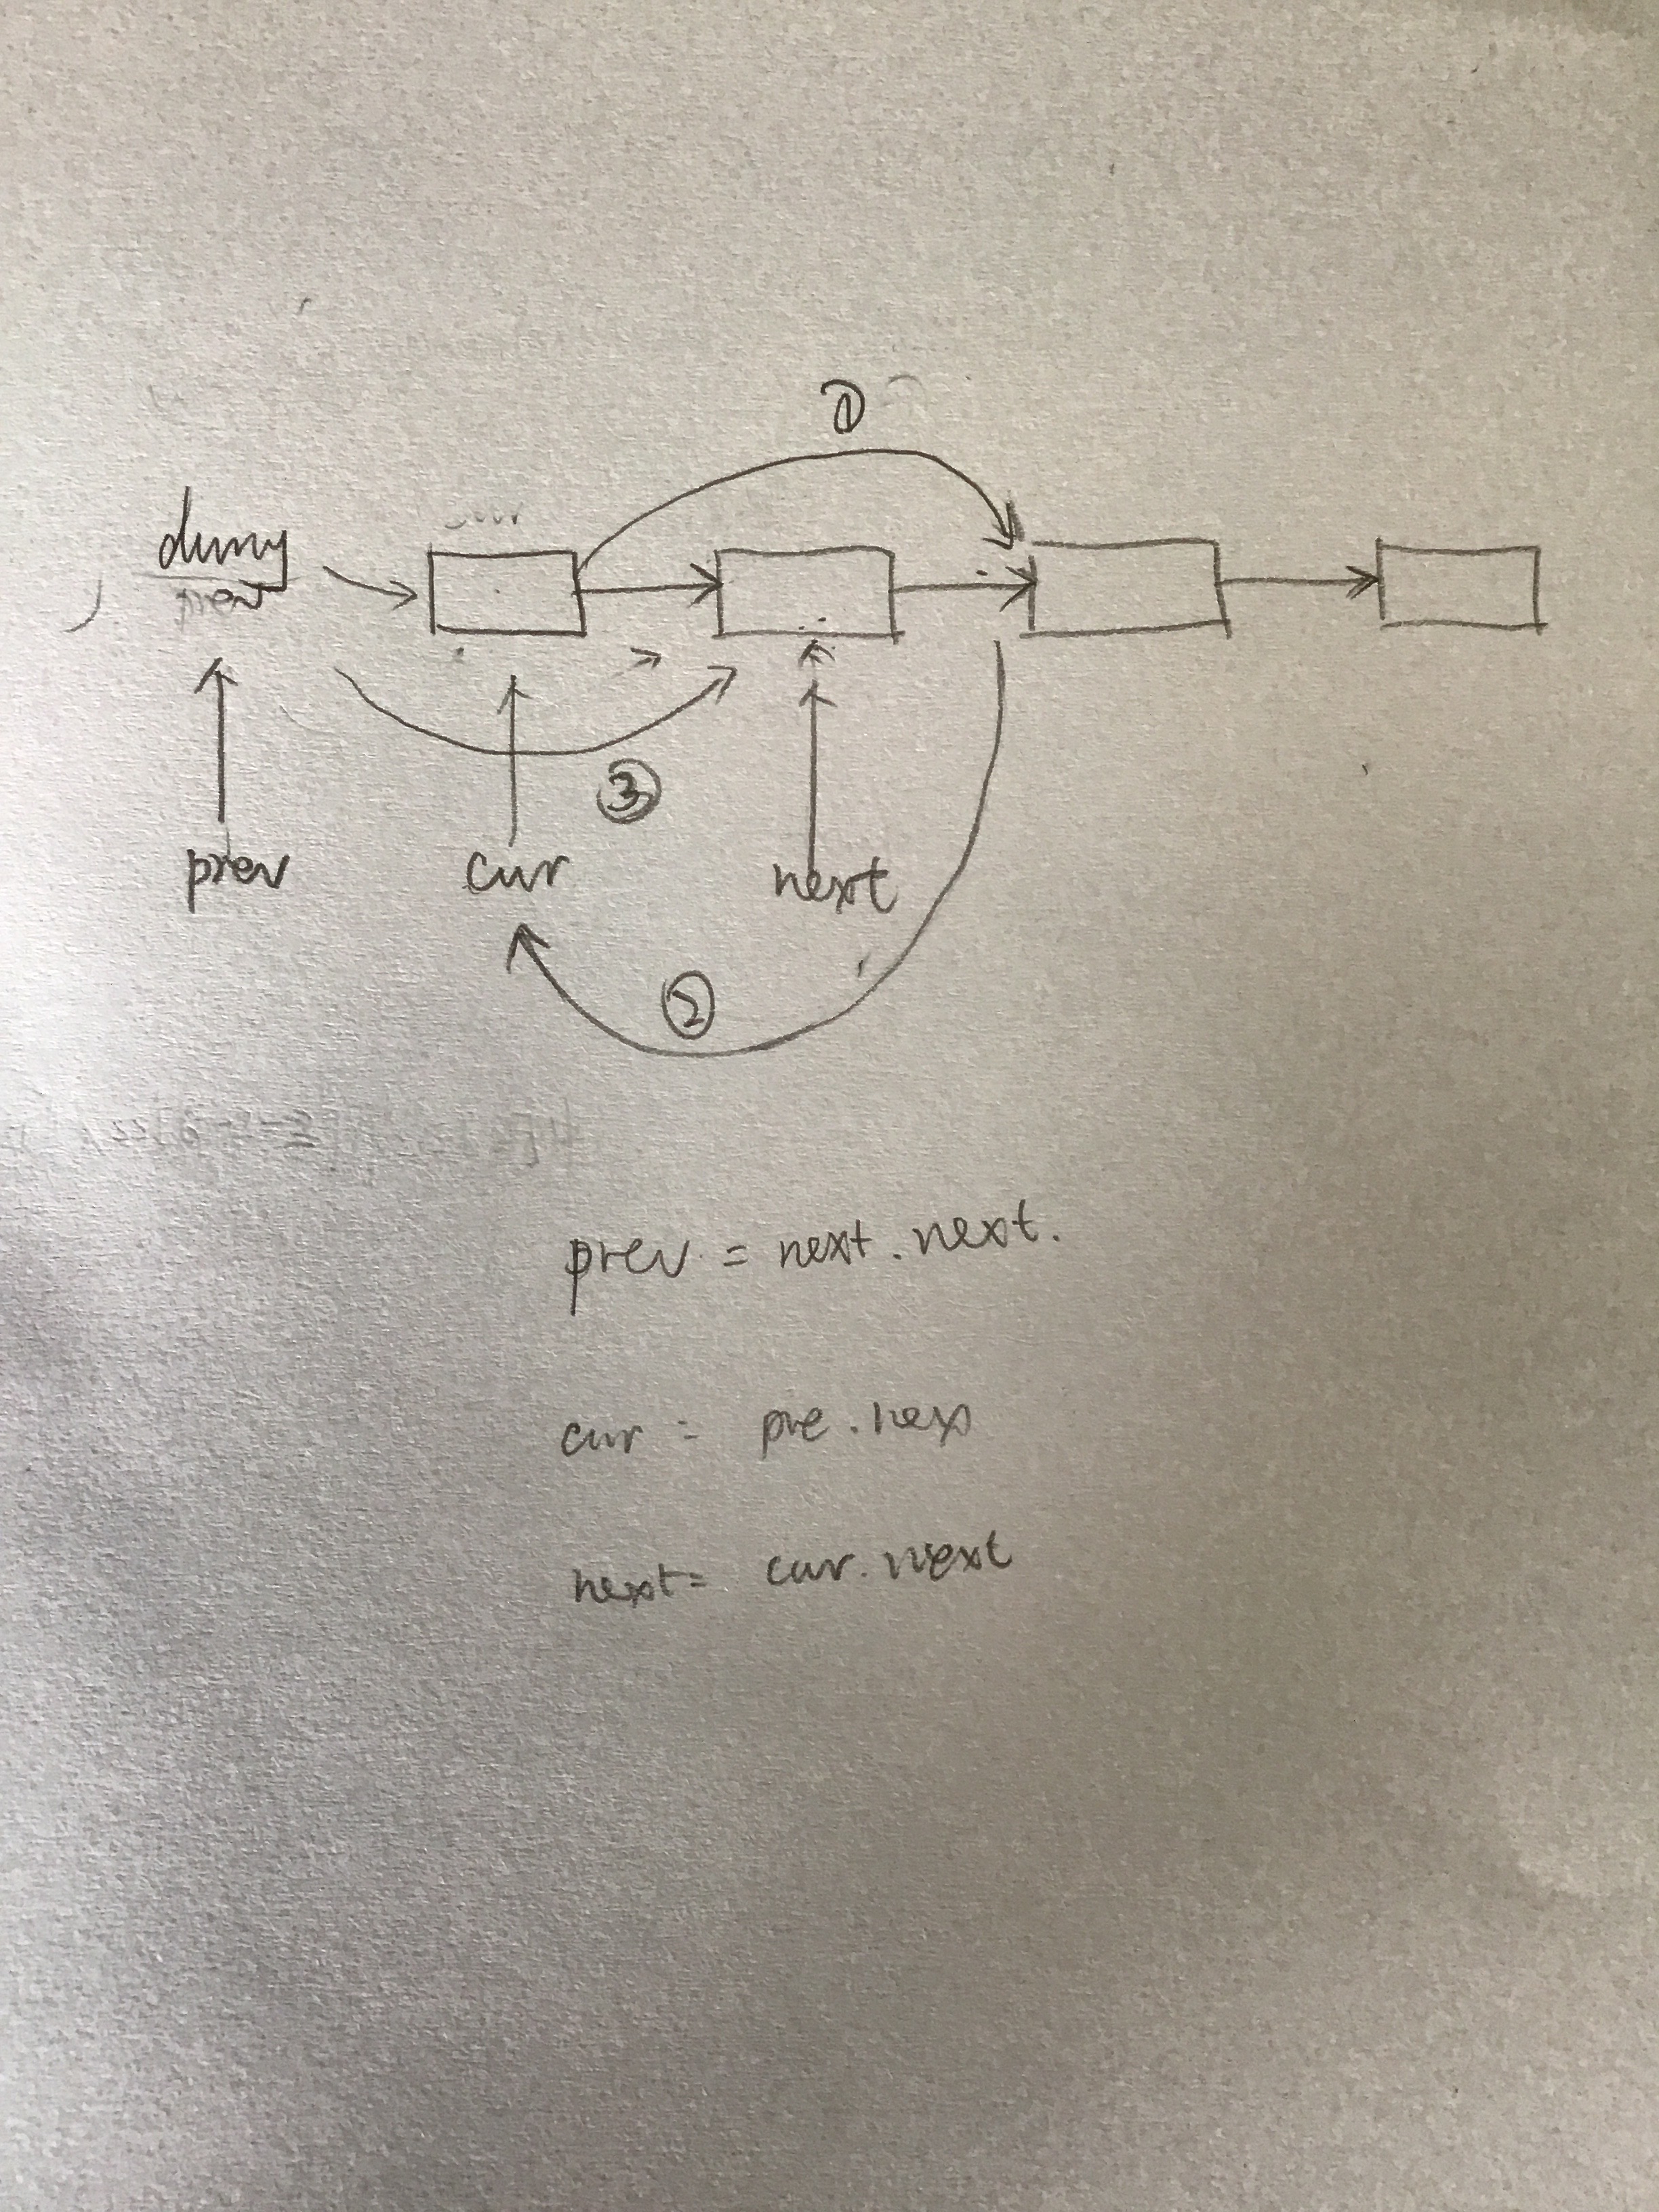 ①
dumy
prev
③
prev cur next
②
prev = next.next.
cur = pre.nex
next = cur.next